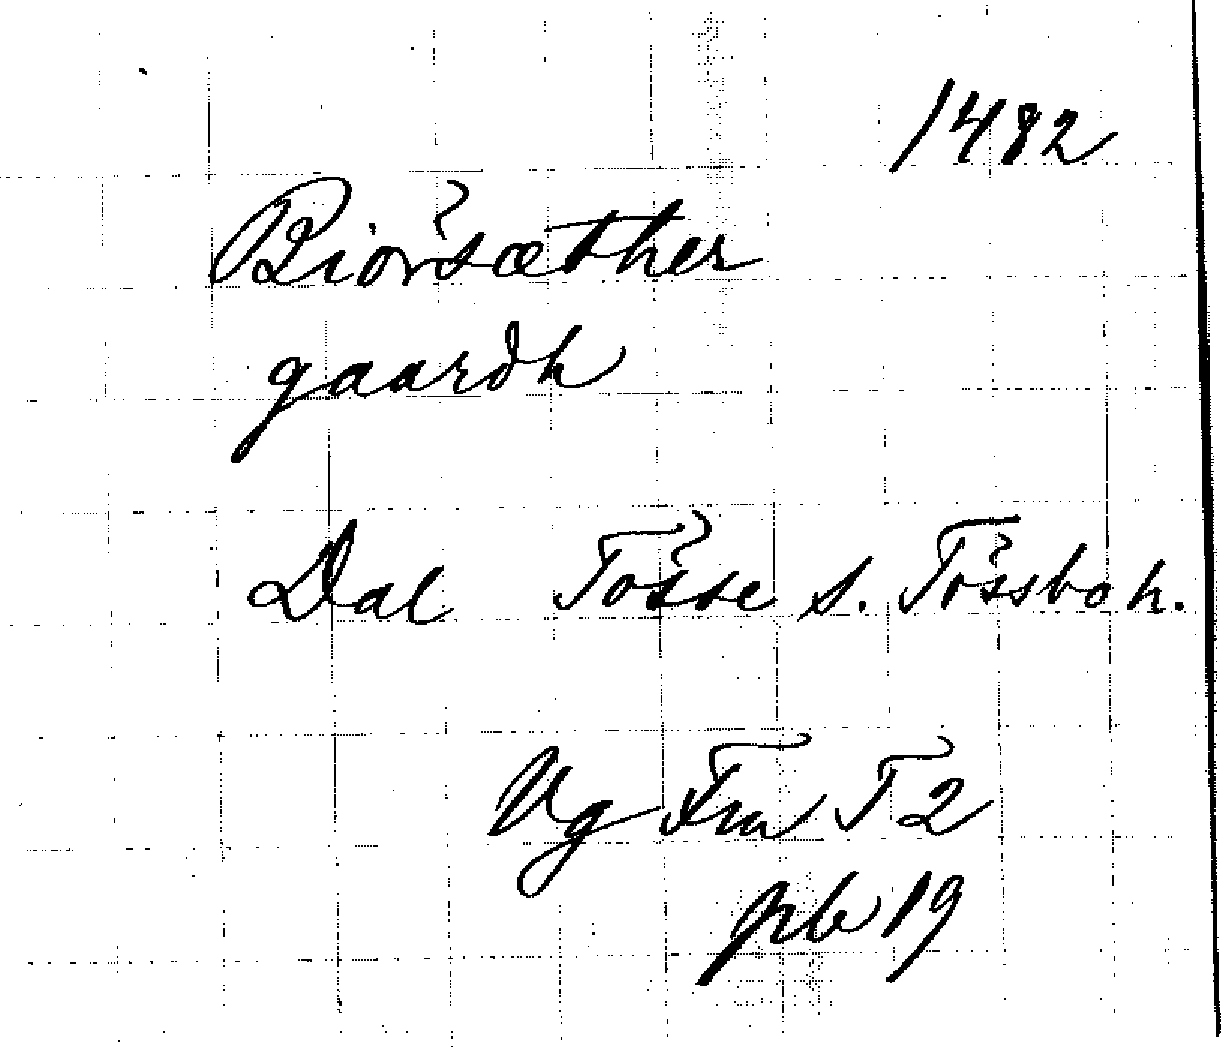 1482
Biörsæther
gaardh
Dal Tösse s. Tössbo h.
Vg Fra T 2
prb 19